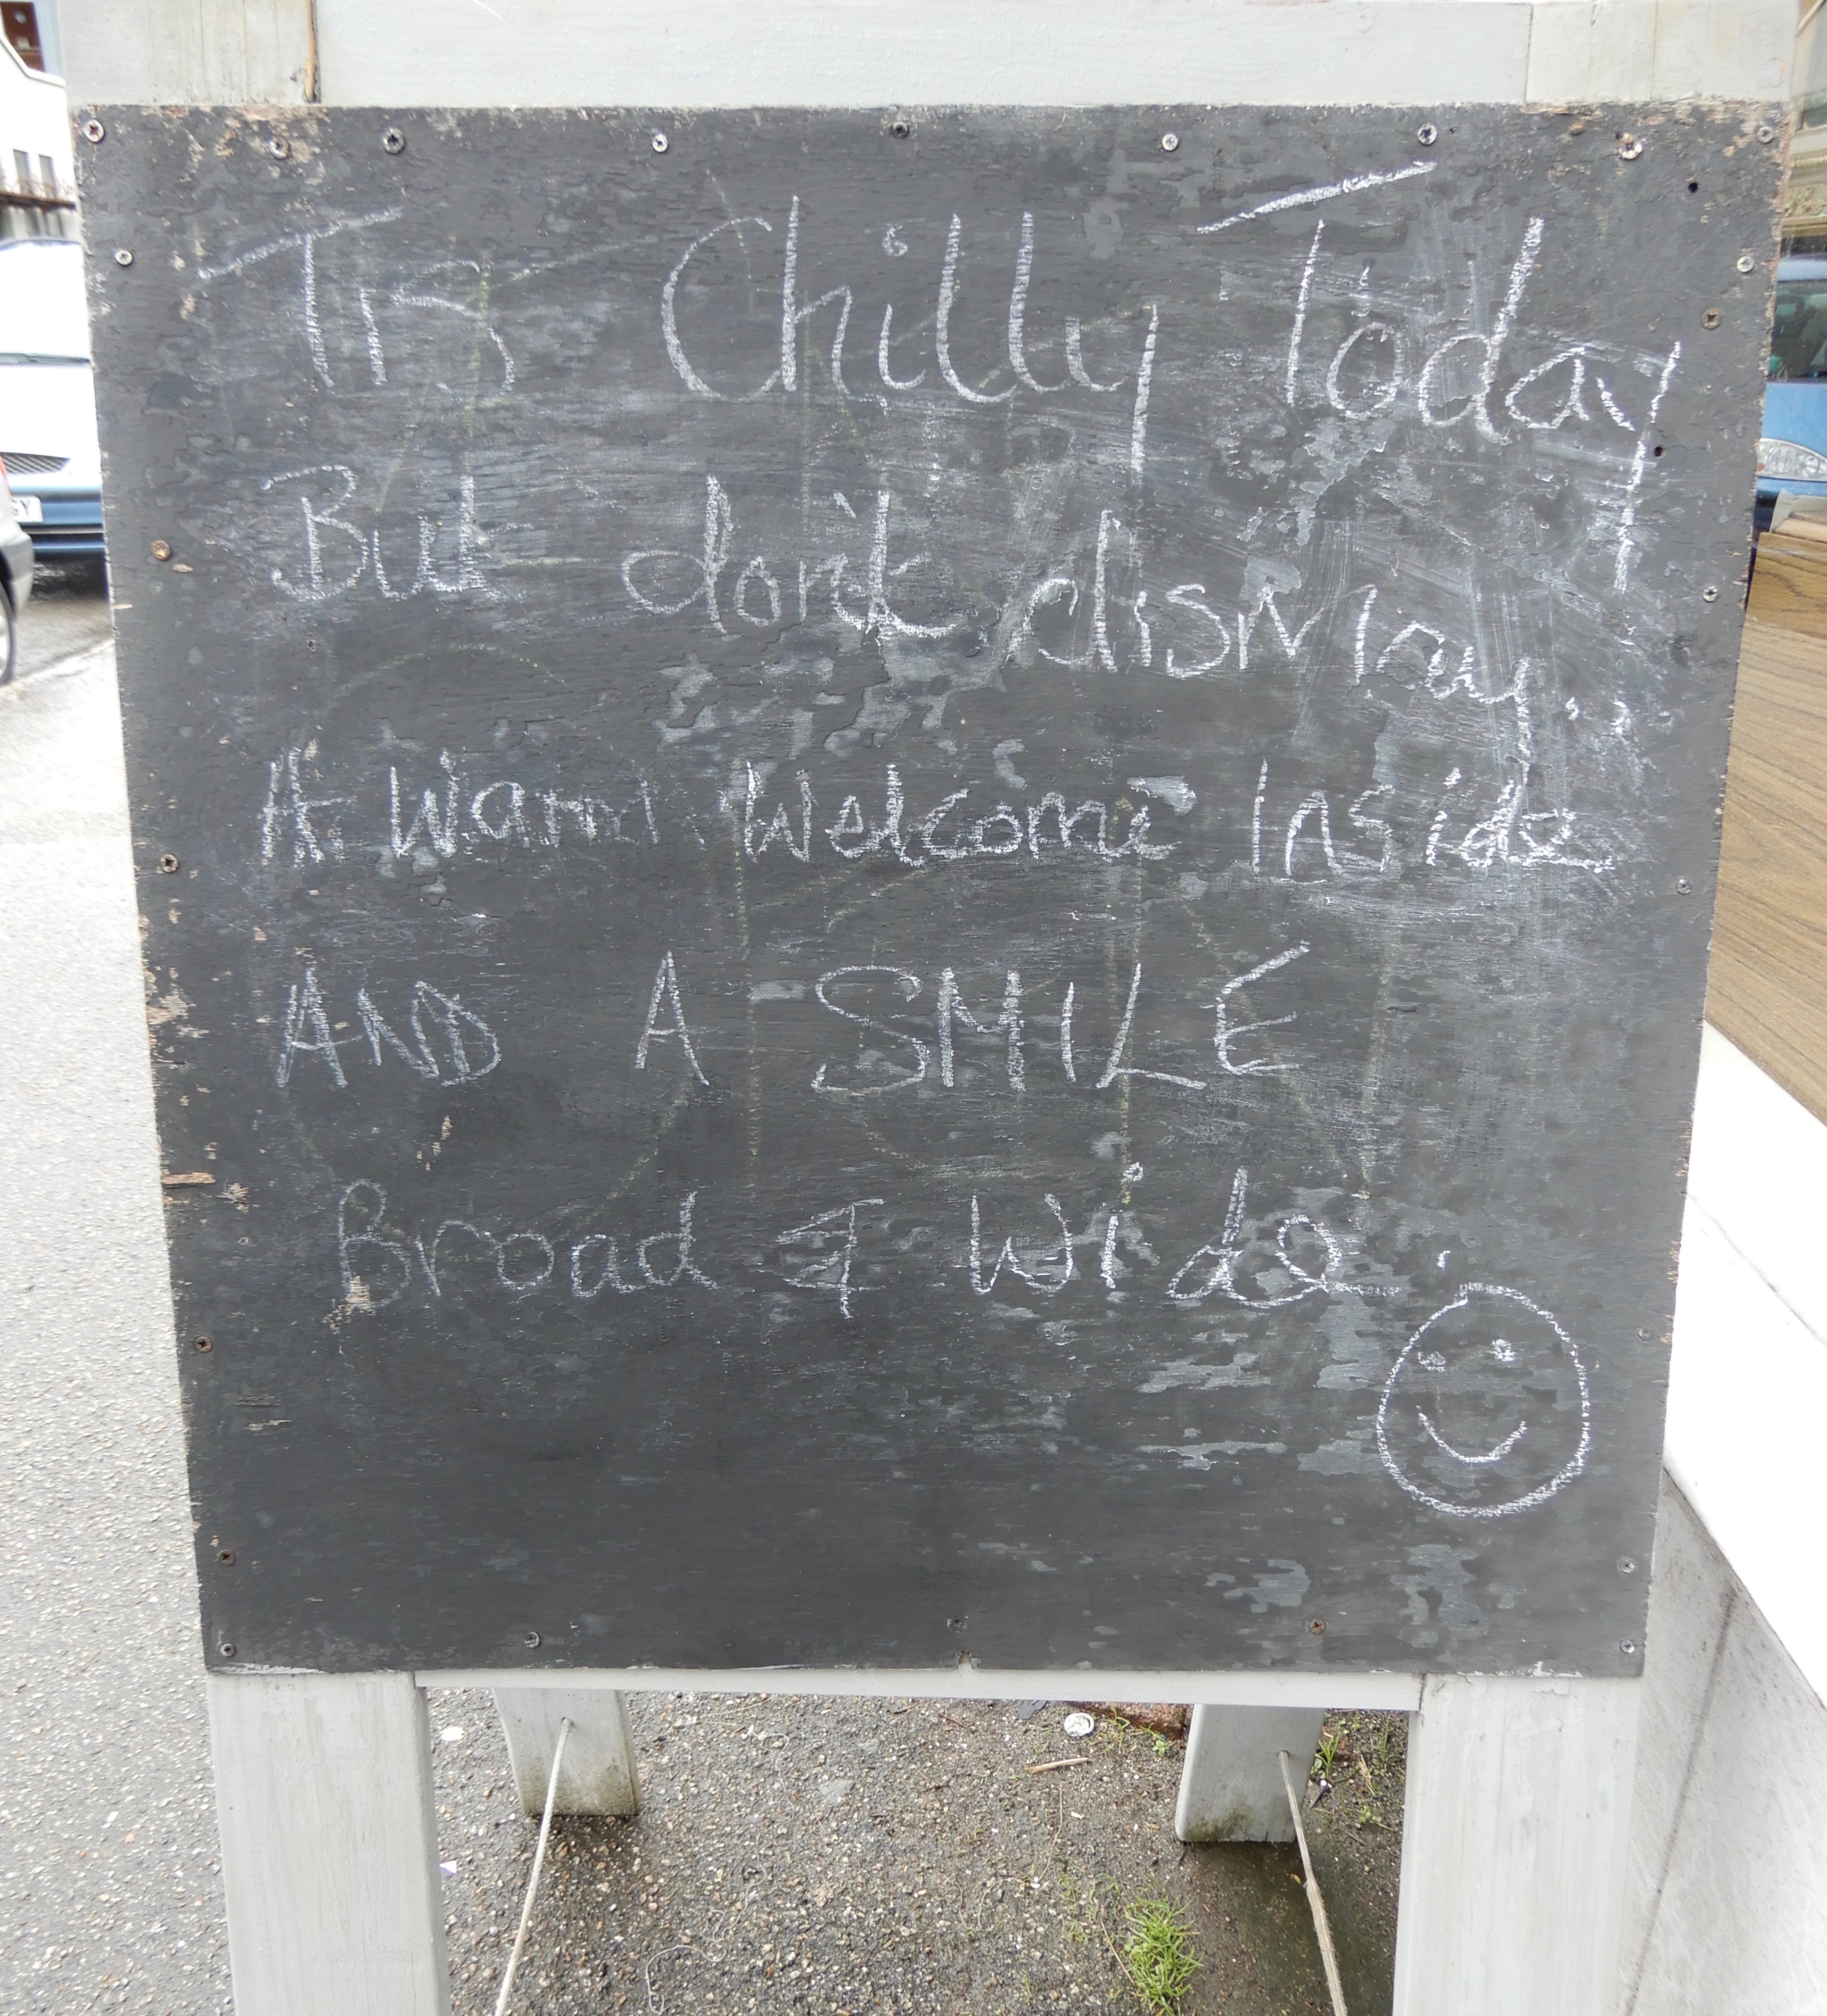 Tis Chilly Today
But don't dismay.
A Warm Welcome Inside
AND A SMILE
Broad & Wide.